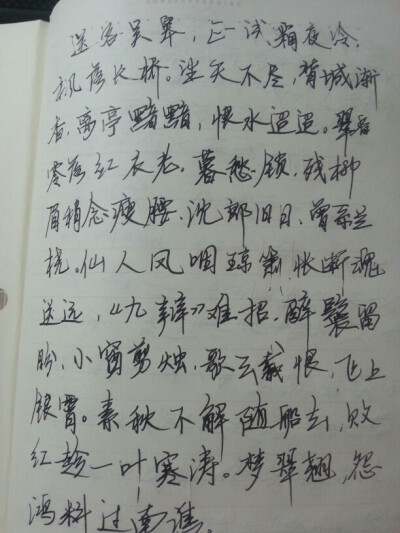 送客吴皋,正试霜夜冷,
枫落长桥。望天不尽,背城渐
杳,离亭黯黯,恨水迢迢。翠香
零落红衣老。暮愁锁,残柳
眉稍念瘦腰.沈郎旧日,曾系兰
桡。仙人凤咽琼箫,怅断魂
送远,《九辩》难招.醉鬟留
盼,小窗剪烛,歌云载恨,飞上
银霄。素秋不解随船去,败
红趁一叶寒涛。梦翠翘,怨
鸿料过南谯。